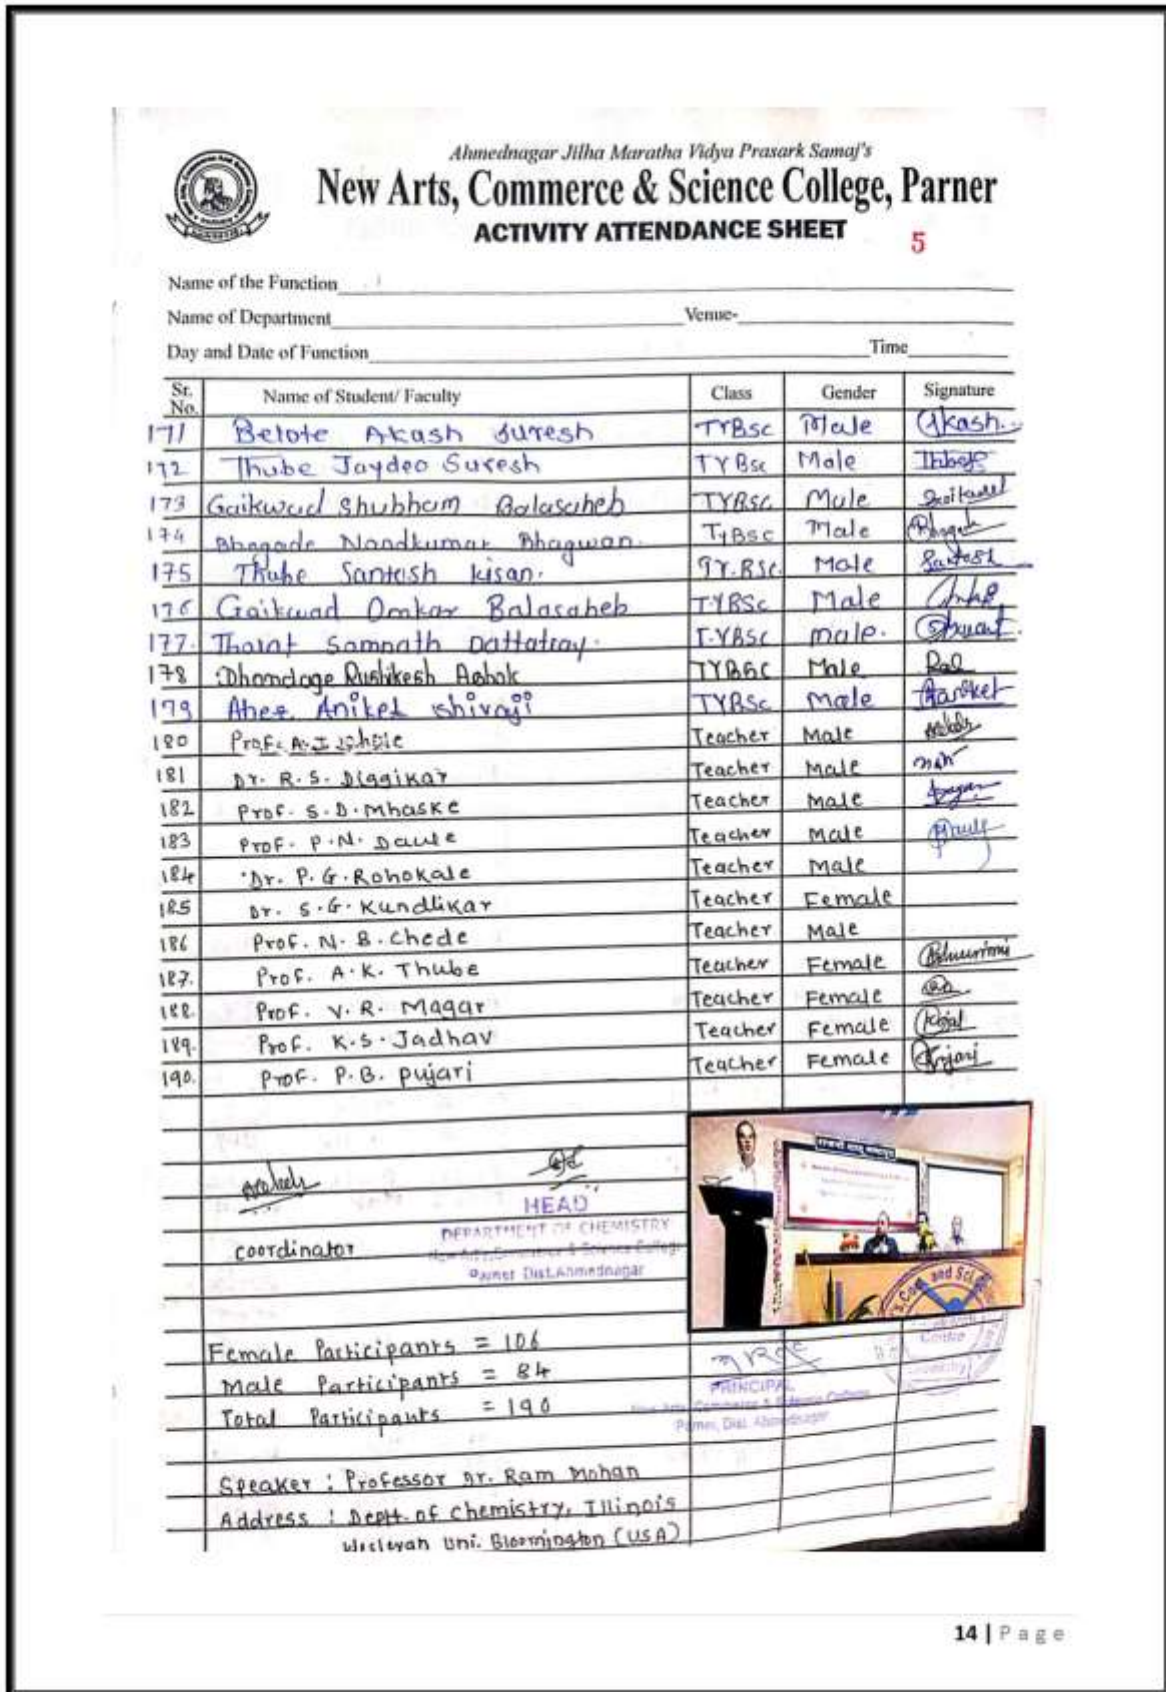 Ahmednagar Jilha Maratha Vidya Prasark Samaj's
New Arts, Commerce & Science College, Parner
ACTIVITY ATTENDANCE SHEET 5
Name of the Function
Name of Department Venue-
Day and Date of Function Time
Sr. No. Name of Student/ Faculty Class Gender Signature
171 Belote Akash Suresh TYBSc Male Akash
172 Thube Jaydeo Suresh TYBSc Male
173 Gaikwad Shubham Balasaheb TYBSc Male
174 Bhagade Nandkumar Bhagwan. TyBSc Male
175 Thube Santosh kisan. Male Santosh
176 Gaikwad Omkar Balasaheb T.YBSc Male
177. Thorat Somnath Dattatray. T.YBSc male.
178 Dhondage Rushikesh Ashok TYBSC Male
179 Aher Aniket Shivaji TYBSc male Aniket
180 Prof. A. J. Teacher Male
181 Dr. R. S. Diggikar Teacher Male
182 Prof. S. D. Mhaske Teacher Male
183 Prof. P. N. Daule Teacher Male
184 Dr. P. G. Rohokale Teacher Male
185 Dr. S. G. Kundlikar Teacher Female
186 Prof. N. B. Chede Teacher Male
187. Prof. A. K. Thube Teacher Female
188. Prof. V. R. Magar Teacher Female
189. Prof. K. S. Jadhav Teacher Female Kajal
190. Prof. P. B. pujari Teacher Female Pujari
HEAD
DEPARTMENT OF CHEMISTRY
New Arts, Commerce & Science College
Parner Dist.Ahmednagar
coordinator
Com. and Sci.
Female Participants = 106
Male Participants = 84
Total Participants = 190
PRINCIPAL
New Arts, Commerce & Science College
Parner, Dist. Ahmednagar
Centre
Chemistry
Speaker : Professor Dr. Ram Mohan
Address : Deptt. of Chemistry, Illinois
Wesleyan Uni. Bloomington (USA)
14 | Page